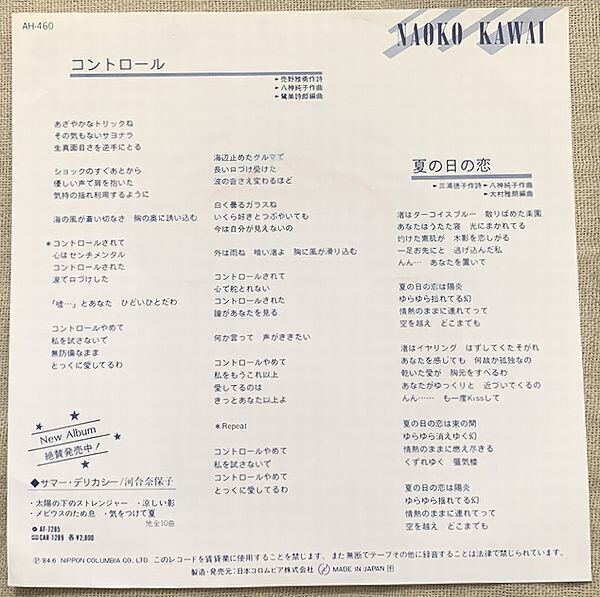 AH-460
NAOKO KAWAI
コントロール
►売野雅勇作詩
►八神純子作曲
►鷺巣詩郎編曲
あざやかなトリックね
その気もないサヨナラ
生真面目さを逆手にとる
ショックのすぐあとから
優しい声で肩を抱いた
気持の揺れ利用するように
海の風が蒼い切なさ 胸の奥に誘い込む
*コントロールされて
心はセンチメンタル
コントロールされた
涙で口づけした
「嘘…」とあなた ひどいひとだわ
コントロールやめて
私を試さないで
無防備なまま
とっくに愛してるわ
海辺止めたクルマで
長い口づけ受けた
波の音さえ変わるほど
白く曇るガラスね
いくら好きとつぶやいても
今は自分が見えないの
外は雨ね 暗い渚よ 胸に風が滑り込む
コントロールされて
心で舵とれない
コントロールされた
瞳があなたを見る
何か言って 声がききたい
コントロールやめて
私をもうこれ以上
愛してるのは
きっとあなた以上よ
*Repeat
コントロールやめて
私を試さないで
コントロールやめて
とっくに愛してるわ
夏の日の恋
►三浦徳子作詩►八神純子作曲
►大村雅朗編曲
渚はターコイスブルー 散りばめた楽園
あなたはうたた寝 光にまかれてる
灼けた素肌が 木影を恋しがる
一足お先にと 逃げ込んだ私
んん… あなたを置いて
夏の日の恋は陽炎
ゆらゆら揺れてる幻
情熱のままに連れてって
空を越え どこまでも
渚はイヤリング はずしてくたそがれ
あなたを感じても 何故か孤独なの
乾いた愛が 胸元をすべるわ
あなたがゆっくりと 近づいてくるの
んん…… も一度Kissして
夏の日の恋は束の間
ゆらゆら消えゆく幻
情熱のままに燃え尽きる
くずれゆく 蜃気楼
夏の日の恋は陽炎
ゆらゆら揺れてる幻
情熱のままに連れてって
空を越え どこまでも
New Album
絶賛発売中!
◆サマー・デリカシー/河合奈保子
・太陽の下のストレンジャー ・涼しい影
・メビウスのため息 ・気をつけて夏
他全10曲
AF-7285
CAR-1299 各¥2,800
Ⓟ'84.6 NIPPON COLUMBIA CO., LTD. このレコードを賃貸業に使用することを禁じます。また無断でテープその他に録音することは法律で禁じられています。
製造・発売元:日本コロムビア株式会社 MADE IN JAPAN